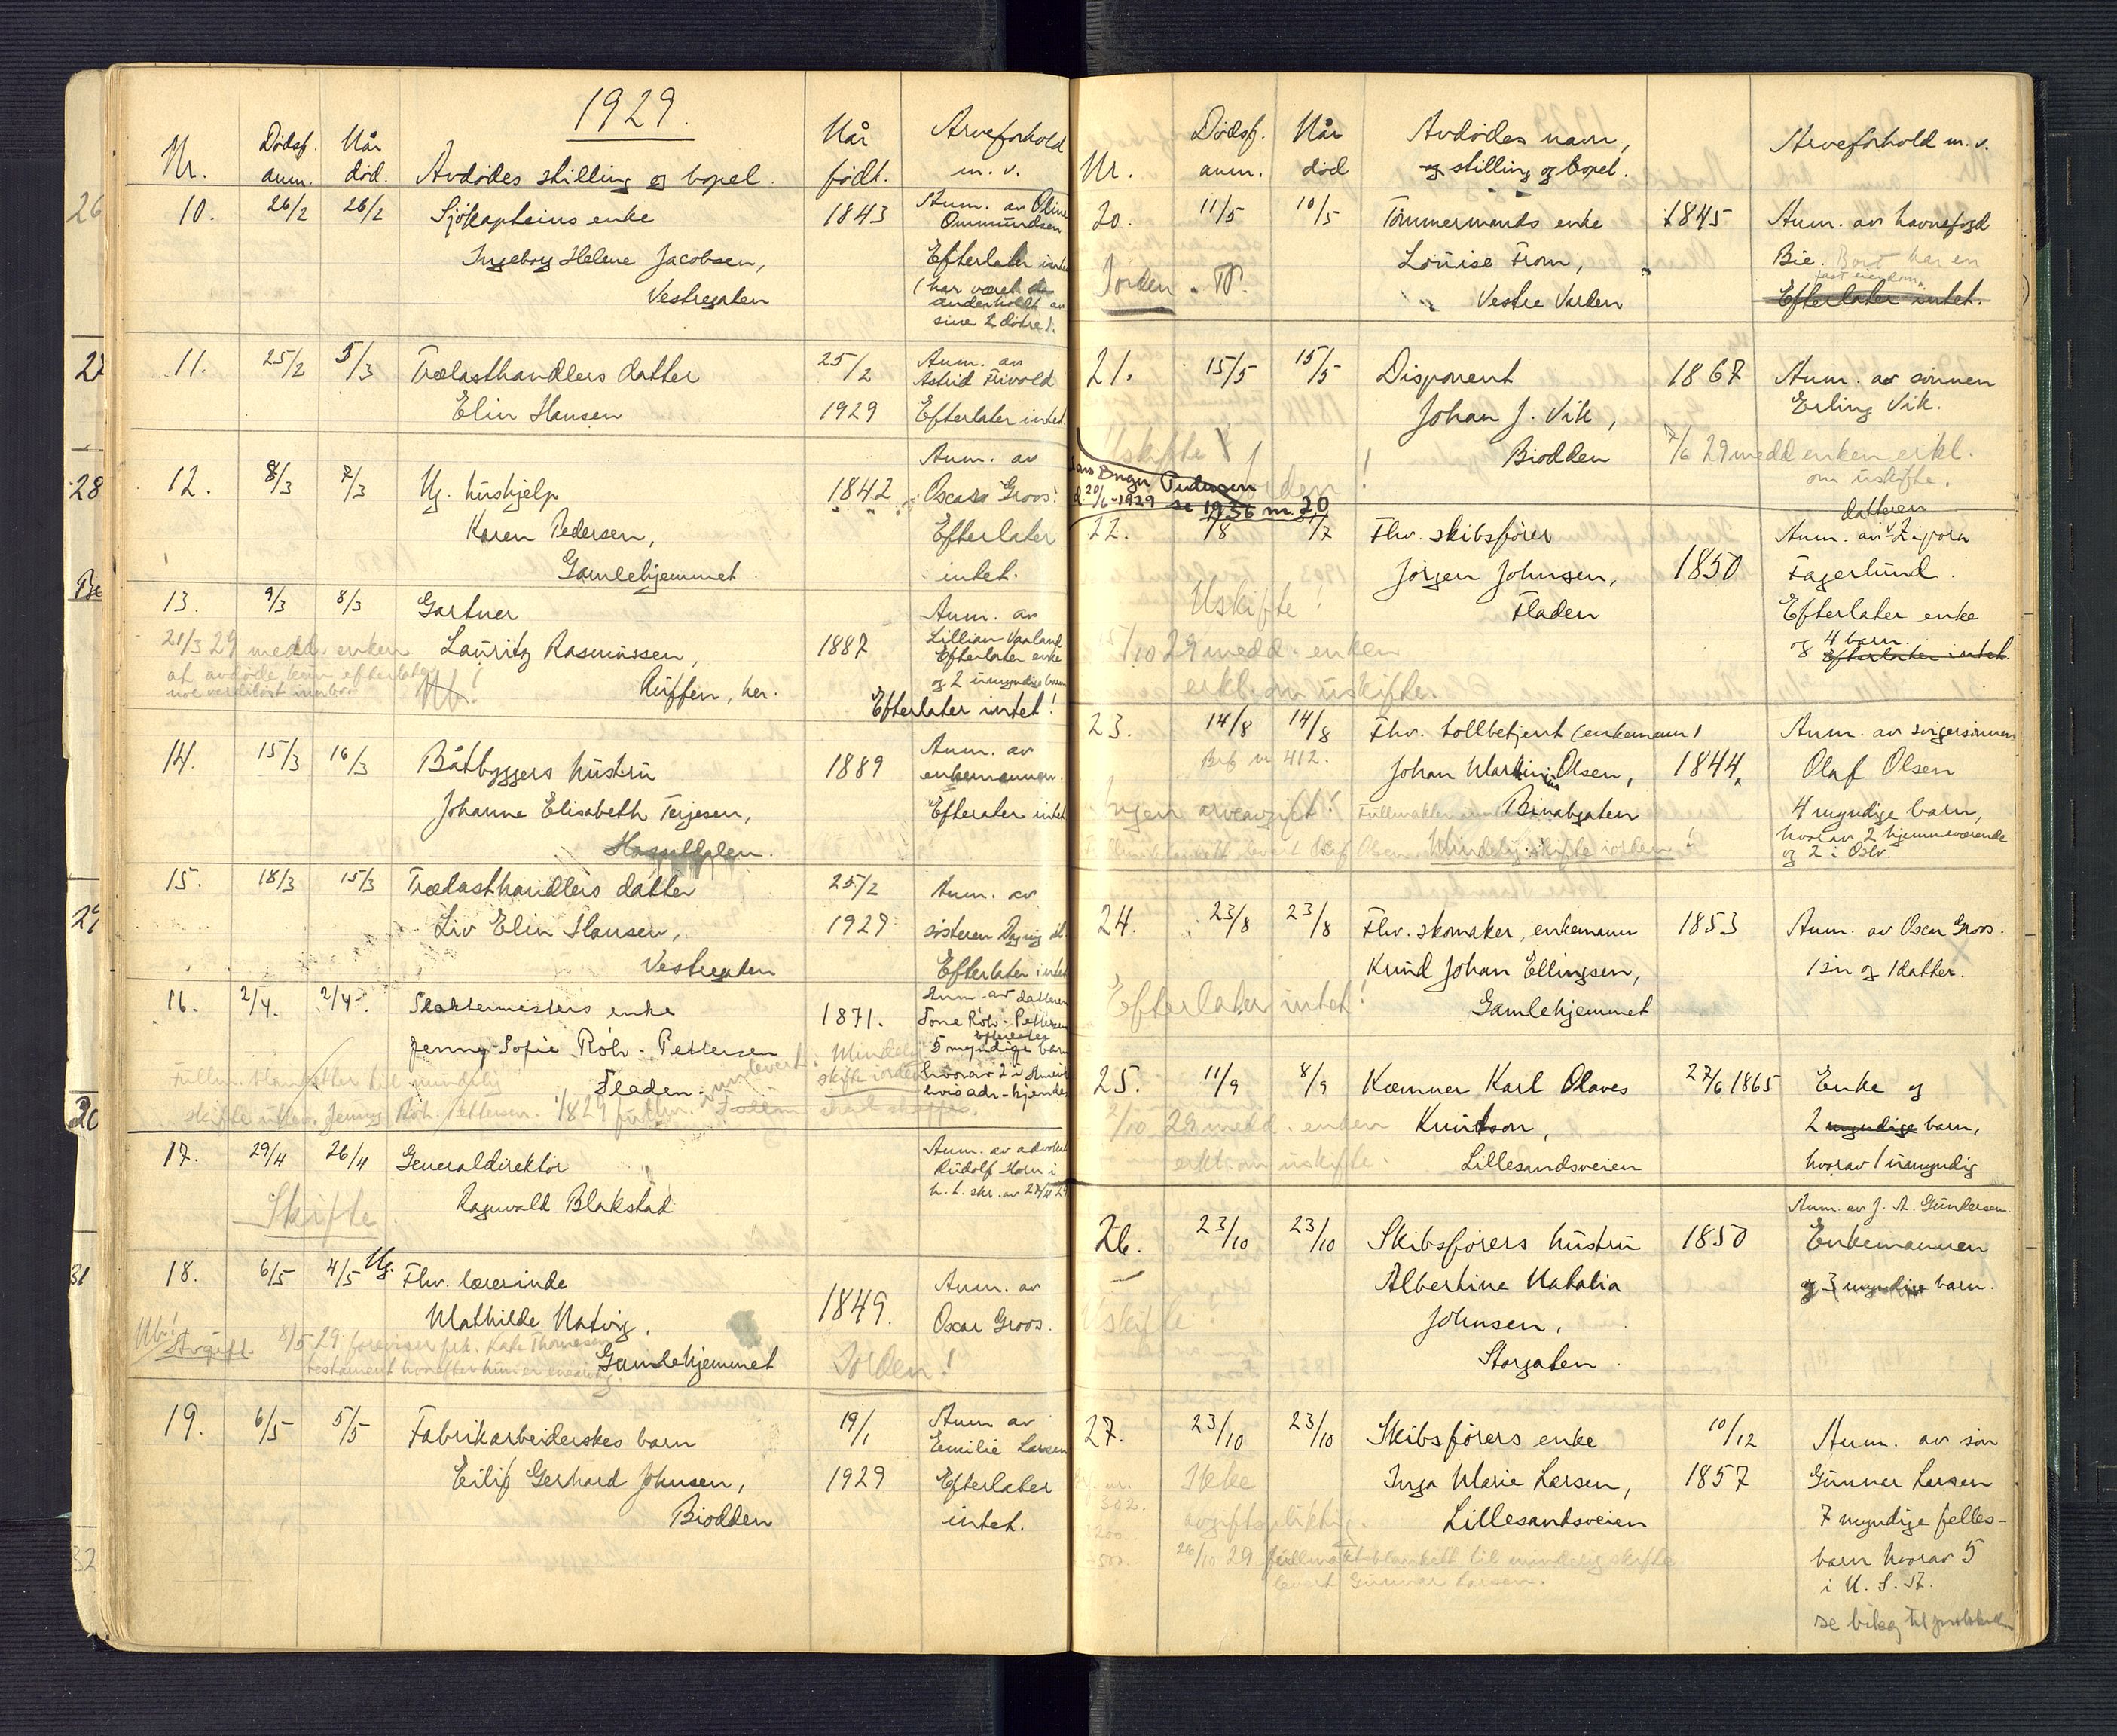 1929.
Nr.
Dødsf. anm.
Når død.
Avdødes stilling og bopel.
Når født.
Arveforhold m. v.
10. 26/2 26/2 Sjökapteins enke 1843 Anm. av Oline
Ommundsen
Ingeborg Helene Jacobsen, Efterlater intet
Vestregaten (har været
underholdt av
sine 2 døtre).
11. 25/2 5/3 Trælasthandlers datter 25/2 Anm. av
Astrid Frivold
Elin Hansen 1929 Efterlater intet.
Anm. av
12. 8/3 7/3 Ug. hushjelp 1842 Oscar Groos.
Karen Pedersen, Efterlater
Gamlehjemmet. intet.
13. 9/3 8/3 Gartner Anm. av
21/3 29 medd. enken Lauritz Rasmussen, 1887 Lillian Vaaland.
Efterlater enke
at avdøde kun efterlater og 2 umyndige barn
Nb! Auffen, her.
Efterlater intet!
14. 15/3 16/3 Båtbyggers hustru 1889 Anm. av
enkemannen.
Johanne Elisabeth Terjesen, Efterater intet
15. 18/3 15/3 Trælasthandlers datter 25/2 Anm. av
Liv Elin Hansen, 1929 søsteren
Vestregaten Efterlater intet
16. 2/4. 2/4. enke 1871. Anm. av datteren
Tone Röhr-Pettersen
efterlater
Jenny Sofie Röhr-Pettersen 5 myndige barn
Mindelig skifte i orden
hvorav 2 i
Fladen. hvis adr. kjendes
17. 29/4 26/4 Generaldirektör Anm. av advokat
Rudolf Horn i
Skifte Ragnvald Blakstad h. t. skr. av 27/4 29
18. 6/5 4/5 Ug. Fhv. lærerinde 1849. Anm. av
Mathilde Natvig, Oscar Groos.
Nb! Avgift 8/5 29 foreviser frk. Kate Thomesen
testament hvorefter hun er enearving.
Gamlehjemmet Iorden!
19. 6/5 5/5 Fabrikarbeiderskes barn 19/1 Anm av
Emilie Larsen
Eilif Gerhard Johnsen, 1929 Efterlater
Biodden intet.
Nr.
Dødsf. anm.
Når død
Avdødes navn,
og stilling og bopel.
Arveforhold m. v.
20. 11/5 10/5 Tømmermands enke 1845 Anm. av havnefogd
Louise From, Bie. Bort har en
fast eiendom.
Iorden. Vestre Varden Efterlater intet.
21. 15/5 15/5 Disponent 1867 Anm. av sønnen
Johan J. Vik, Erling Vik.
Uskifte Biodden 7/6 29 medd enken erkl.
om uskifte.
Pedersen
d. 20/6-1929 se 1936 nr. 20
datteren
22. 1/8 31/7 Fhv. skibsfører 1850 Anm. av
Jørgen Johnsen, Fagerlund.
Uskifte! Fladen Efterlater enke
og 4 barn.
Efterlater intet.
5/10 29 medd. enken
erkl. om uskifte.
23. 14/8 14/8 Fhv. tollbetjent (enkemann) Anm. av svigersønnen
nr 412. Johan Martinius Olsen, 1844 Olaf Olsen
Ingen arveavgift! Binabgaten 4 myndige barn,
hvorav 2 hjemmeværende
Mindelig skifte iorden og 2 i Oslo.
24. 23/8 23/8 Fhv. skomaker, enkemann 1853 Anm. av Oscar Groos.
Knud Johan Ellingsen, 1 søn og 1 datter.
Efterlater intet! Gamlehjemmet
25. 11/9 8/9 Kæmner Karl Olaves 27/6 1865 Enke og
2/10 29 medd. enken Knutson, 2 myndige barn,
erkl. om uskifte. Lillesandsveien hvorav 1 umyndig
Anm. av J. A. Gundersen
26. 23/10 23/10 Skibsførers hustru 1850 Enkemannen
Albertine Natalia og 3 myndige barn.
Uskifte. Johnsen,
Storgaten
27. 23/10 23/10 Skibsførers enke 10/12 Anm. av søn
Ikke Inga Marie Larsen, 1857 Gunnar Larsen
avgiftspliktig. Lillesandsveien 7 myndige felles-
26/10 29 fullmaktsblankett til mindelig skifte barn hvorav 5
levert Gunnar Larsen. i U. S. A.
se bilag til protokollen